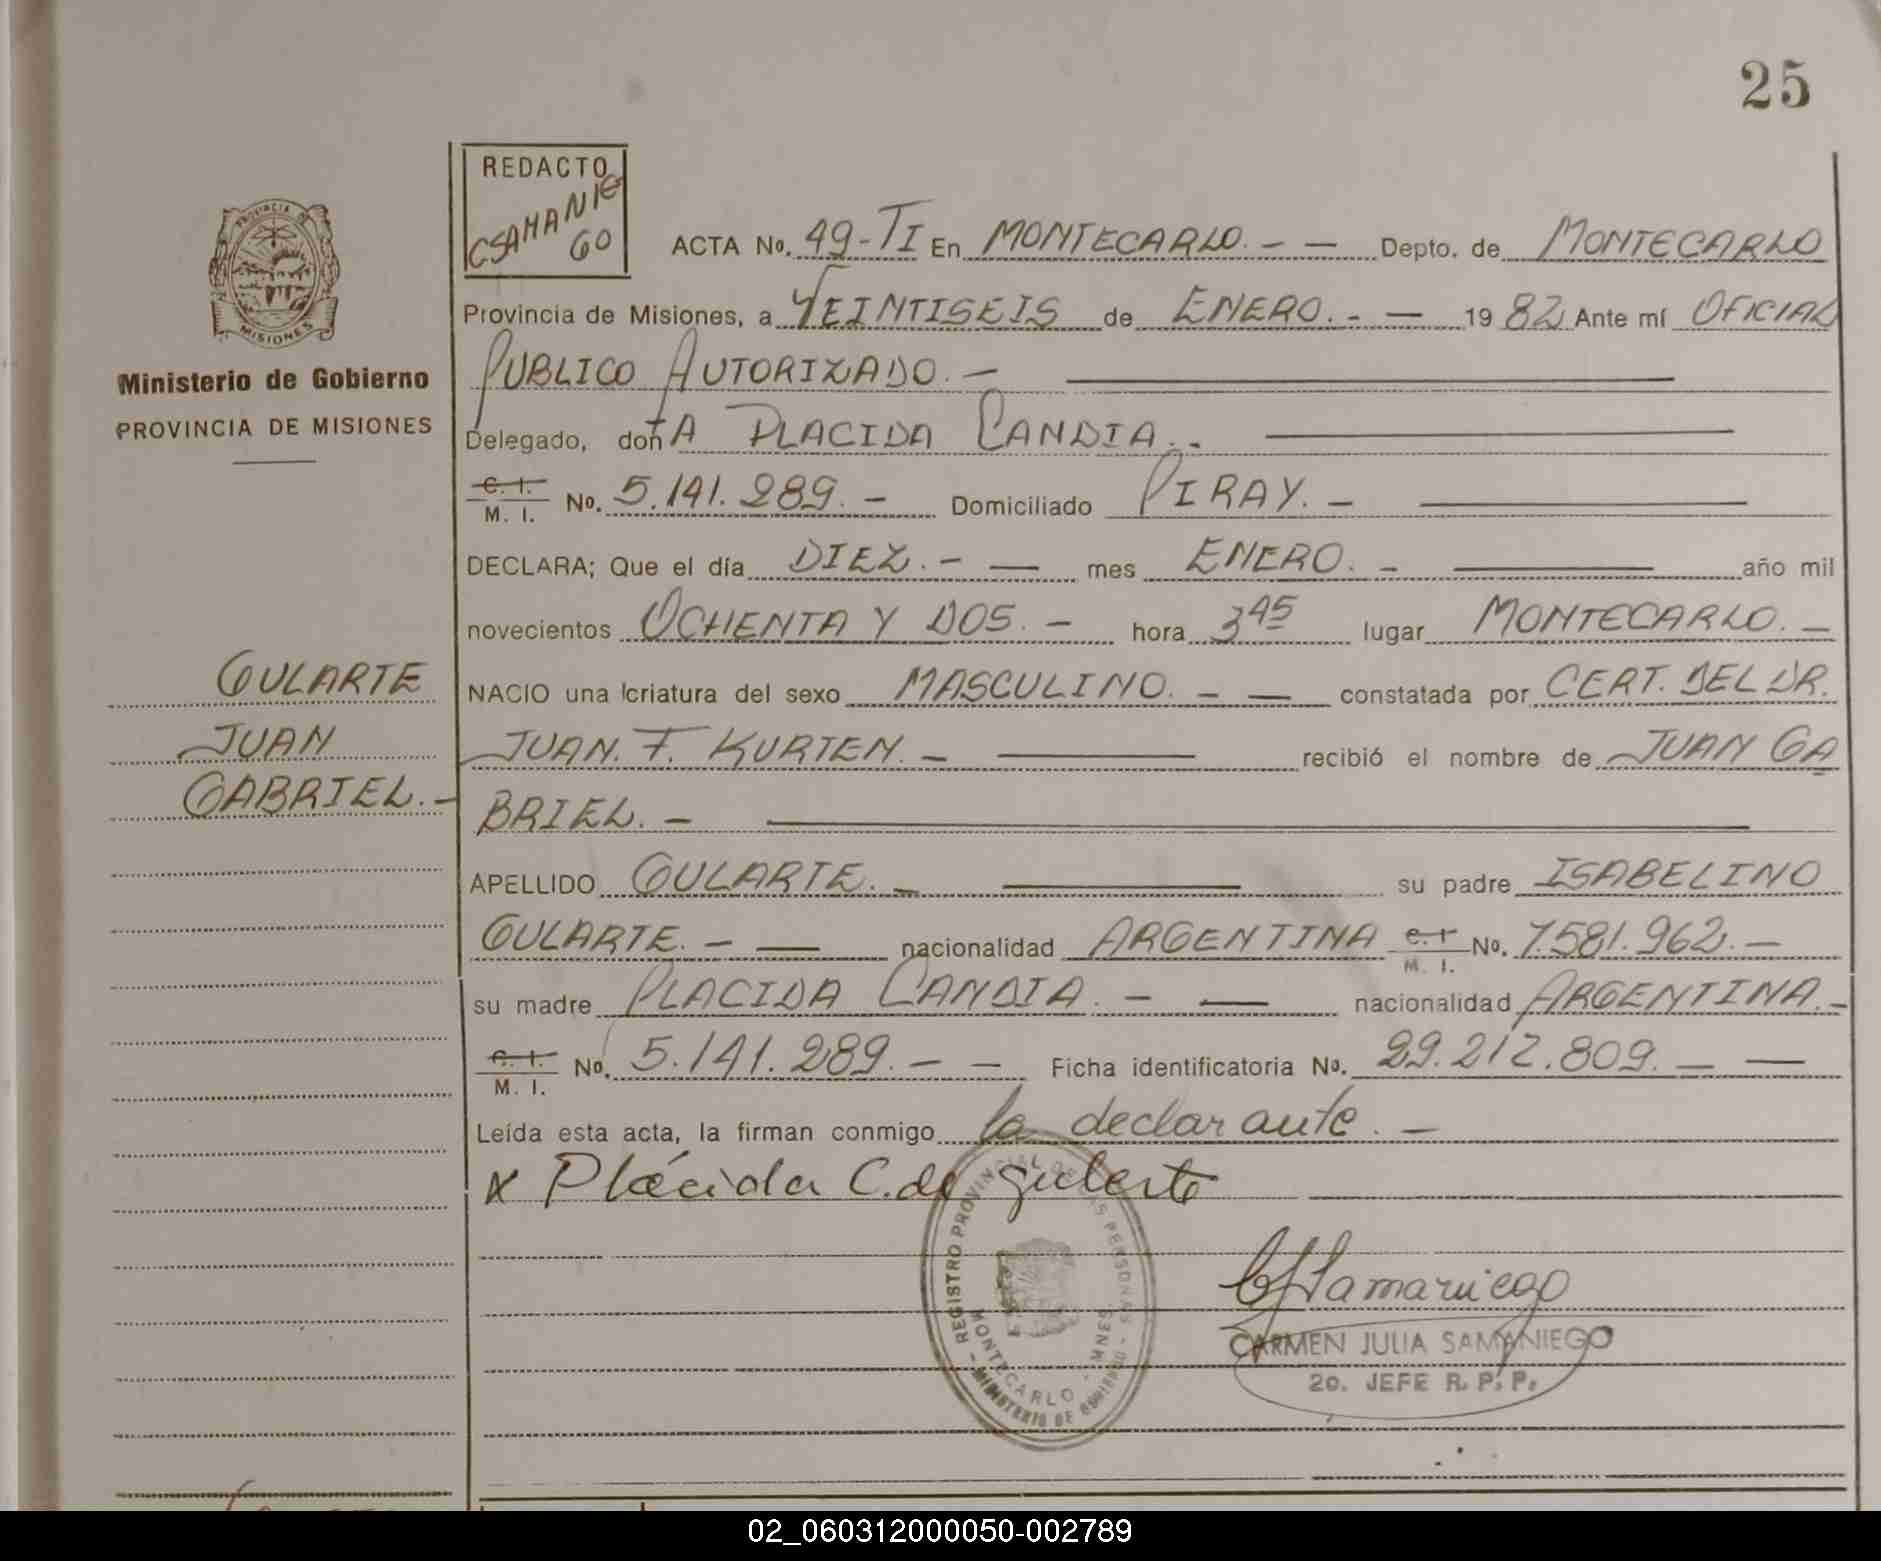 25
REDACTO
CSAMANIE
GO
PROVINCIA DE
MISIONES
Ministerio de Gobierno
PROVINCIA DE MISIONES
ACTA No. 49-TI En MONTECARLO. - — Depto. de MONTECARLO
Provincia de Misiones, a VEINTISEIS de ENERO. - — 1982 Ante mí OFICIAL
PUBLICO AUTORIZADO. —
Delegado, doñA PLACIDA CANDIA. -
C. I.
M. I. No. 5.141.289. - Domiciliado PIRAY. —
DECLARA; Que el día DIEZ. - — mes ENERO. - año mil
novecientos OCHENTA Y DOS. — hora 3 45 lugar MONTECARLO. —
NACIO una criatura del sexo MASCULINO. - — constatada por CERT. DEL DR.
JUAN. F. KURTEN. — recibió el nombre de JUAN GA
BRIEL. —
APELLIDO GULARTE. — su padre ISABELINO
GULARTE. - — nacionalidad ARGENTINA C. I. M. I. No. 7.581.962. —
su madre PLACIDA CANDIA. - — nacionalidad ARGENTINA. -
C. I.
M. I. No. 5.141.289. - — Ficha identificatoria No. 29.212.809. — —
Leída esta acta, la firman conmigo la declarante. —
x Plácida C. de Gularte
GULARTE
JUAN
GABRIEL. -
REGISTRO PROVINCIAL DE LAS PERSONAS
MONTECARLO - MNES.
- MINISTERIO DE GOBIERNO -
CJSamaniego
CARMEN JULIA SAMANIEGO
2o. JEFE R. P. P.
02_060312000050-002789